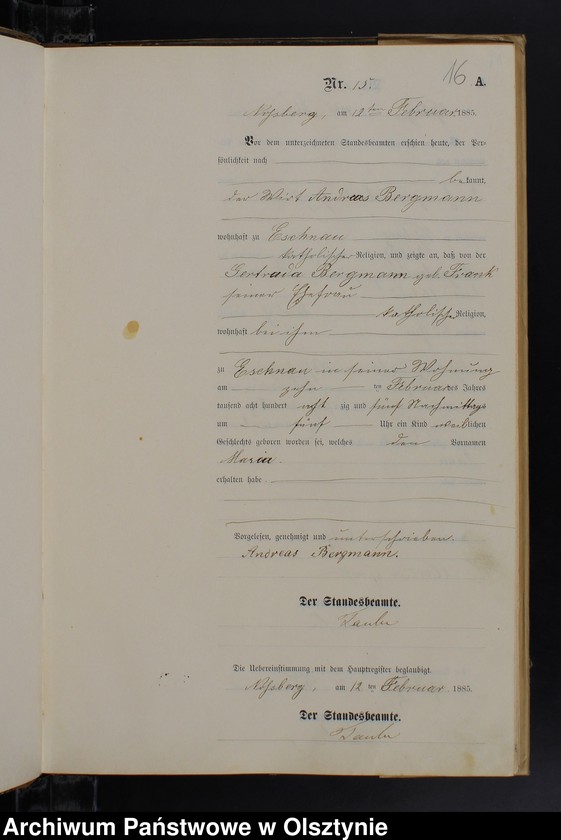 16
Nr. 15. A.
Noßberg, am 12ten Februar 1885.
Vor dem unterzeichneten Standesbeamten erschien heute, der Per-
sönlichkeit nach
bekannt,
der Wirt Andreas Bergmann
wohnhaft zu Eschnau
katholischer Religion, und zeigte an, daß von der
Gertruda Bergmann geb. Frank
seiner Ehefrau
katholischer Religion,
wohnhaft bei ihm
zu Eschnau in seiner Wohnung
am zehn ten Februar des Jahres
tausend acht hundert acht zig und fünf Nachmittags
um fünf Uhr ein Kind weiblichen
Geschlechts geboren worden sei, welches den Vornamen
Maria.
erhalten habe.
Vorgelesen, genehmigt und unterschrieben.
Andreas Bergmann.
Der Standesbeamte.
Die Uebereinstimmung mit dem Hauptregister beglaubigt.
Noßberg, am 12 ten Februar 1885.
Der Standesbeamte.
Archiwum Państwowe w Olsztynie